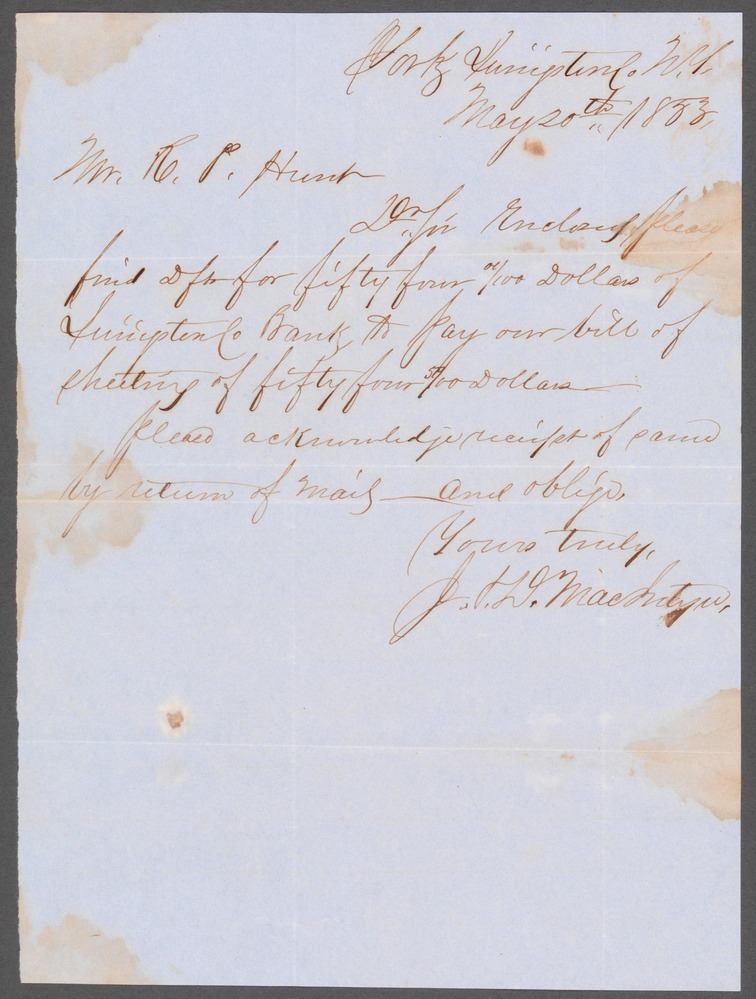 York Livingston Co N.Y.
May 20th 1853,
Mr. R. P. Hunt
Dr Sir Enclosed please
find Dft for fifty four /100 Dollars of
Livingston Co Bank to pay our bill of
sheeting of fifty four 50/100 Dollars —
please acknowledge receipt of same
by return of mail — and oblige,
Yours truly,
J. & D. MacIntyre,